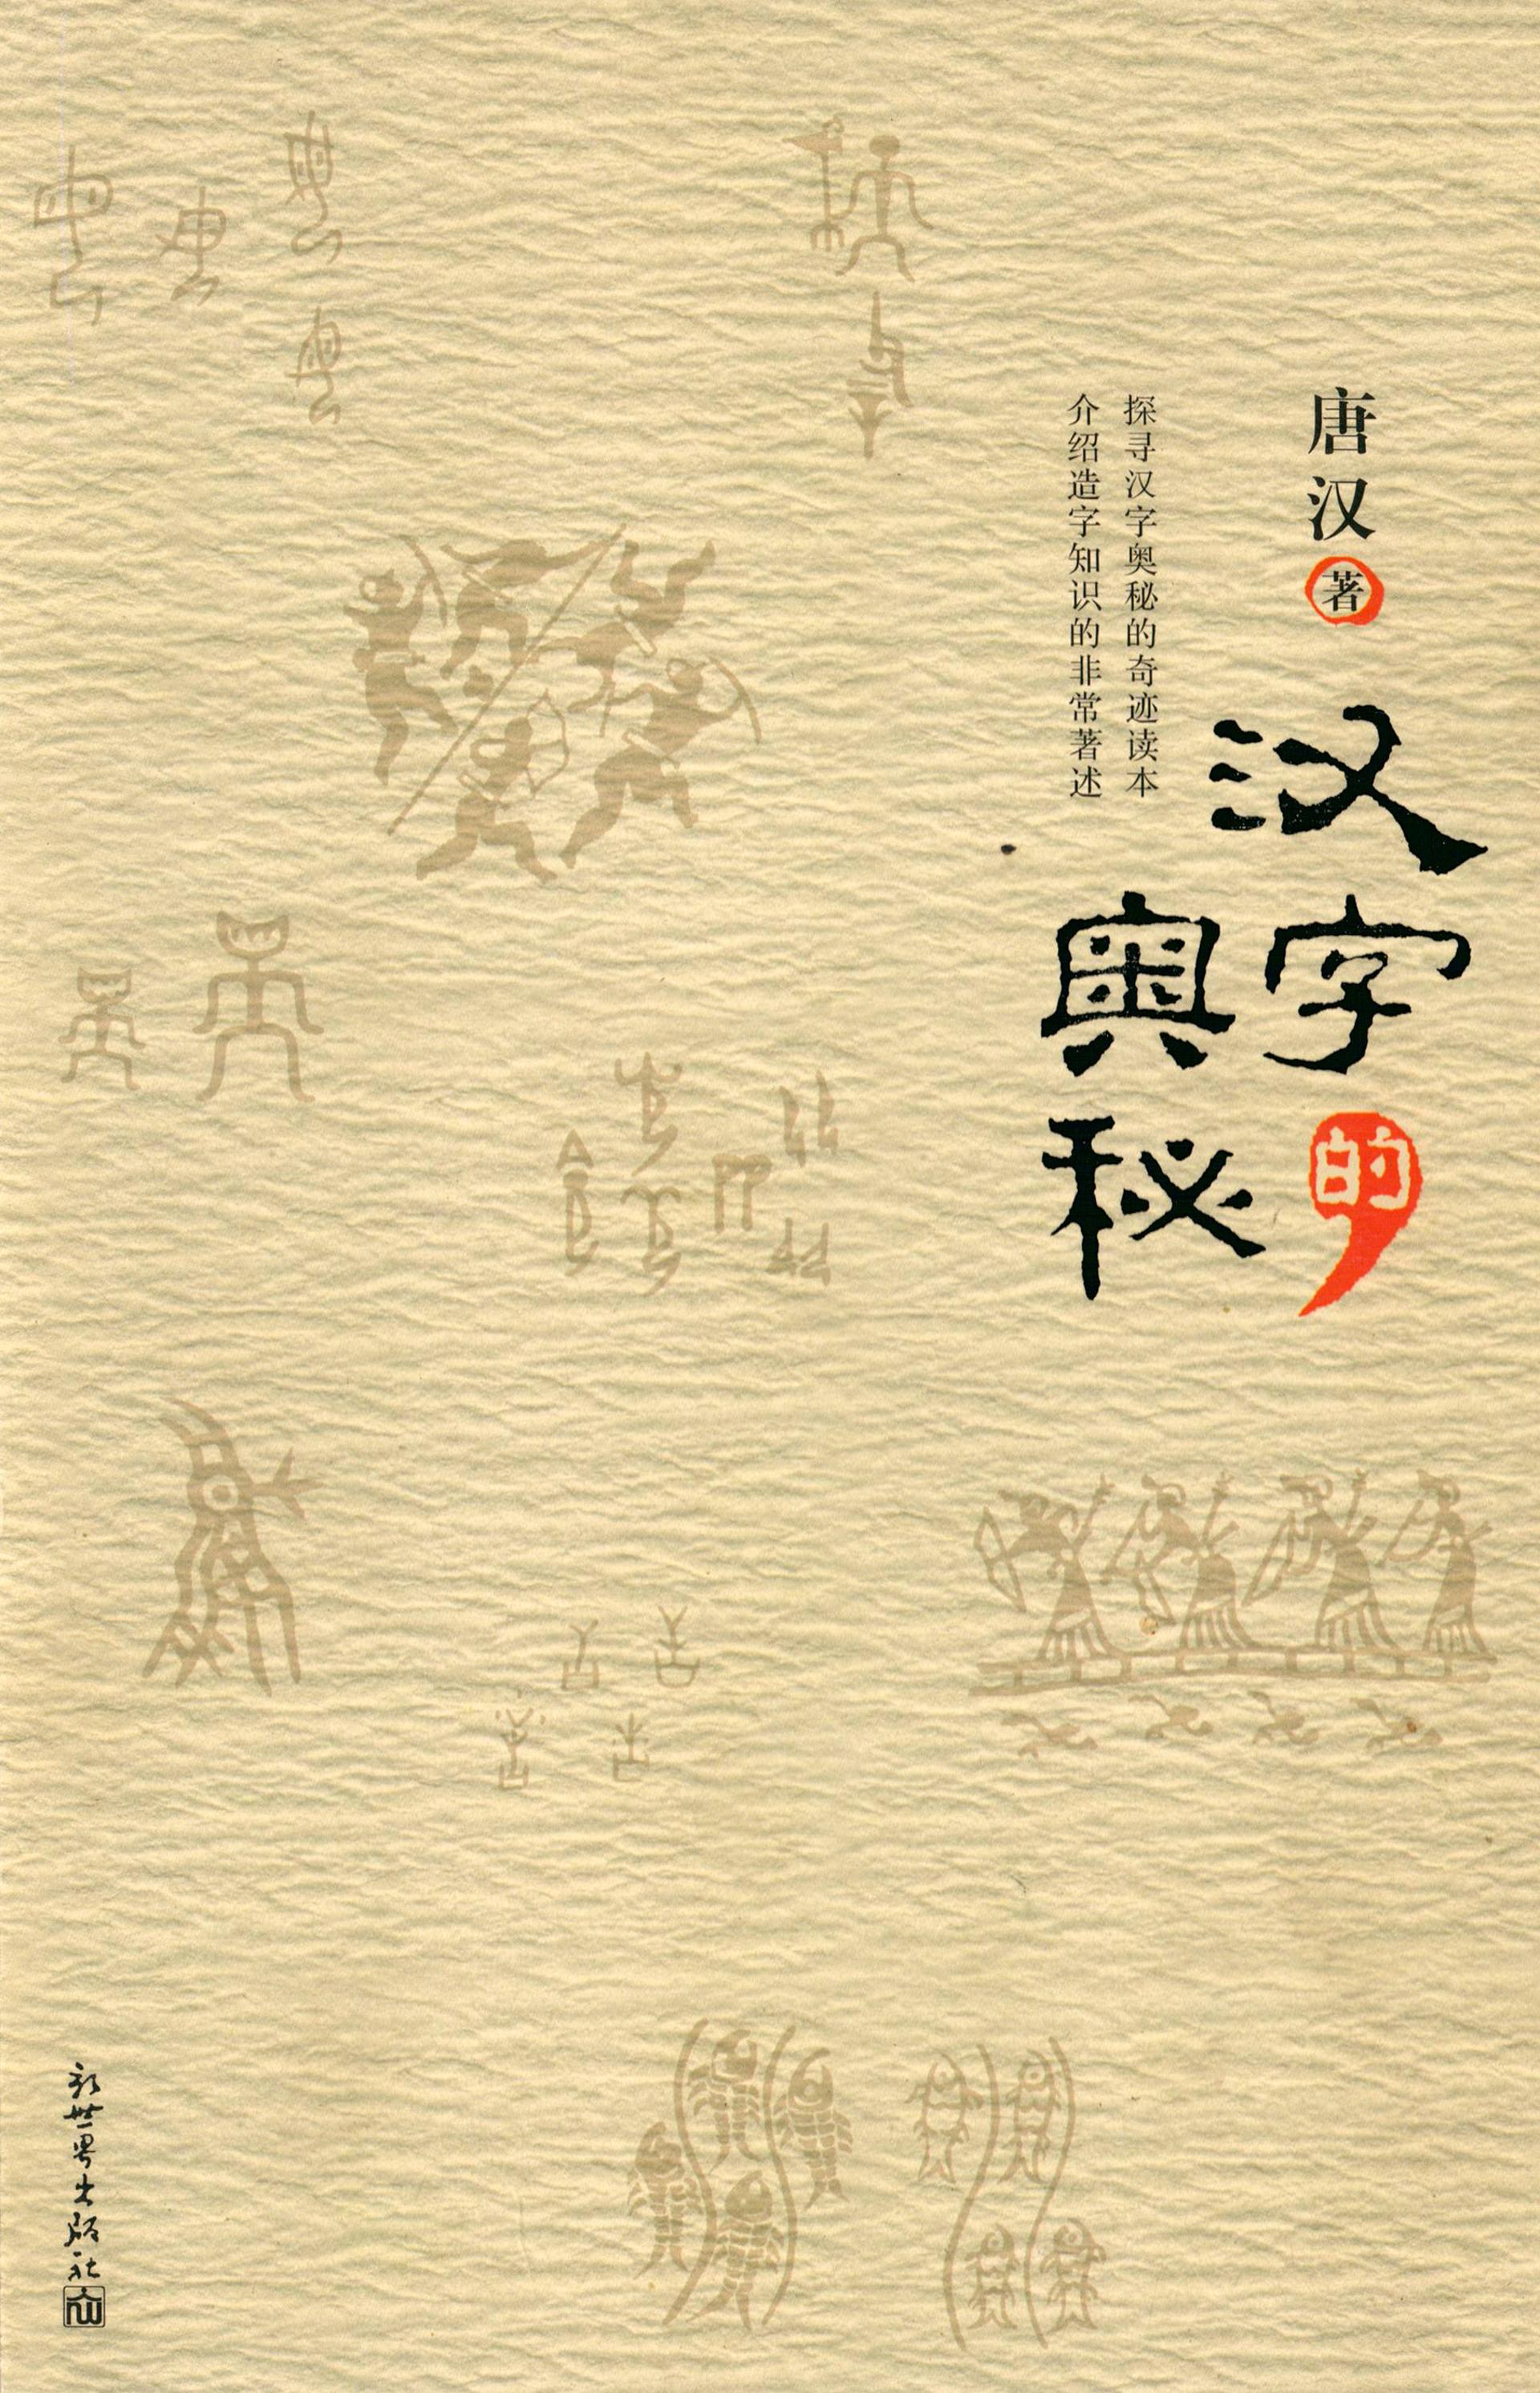 唐汉 著
汉字的
奥秘
探寻汉字奥秘的奇迹读本
介绍造字知识的非常著述
新世界出版社